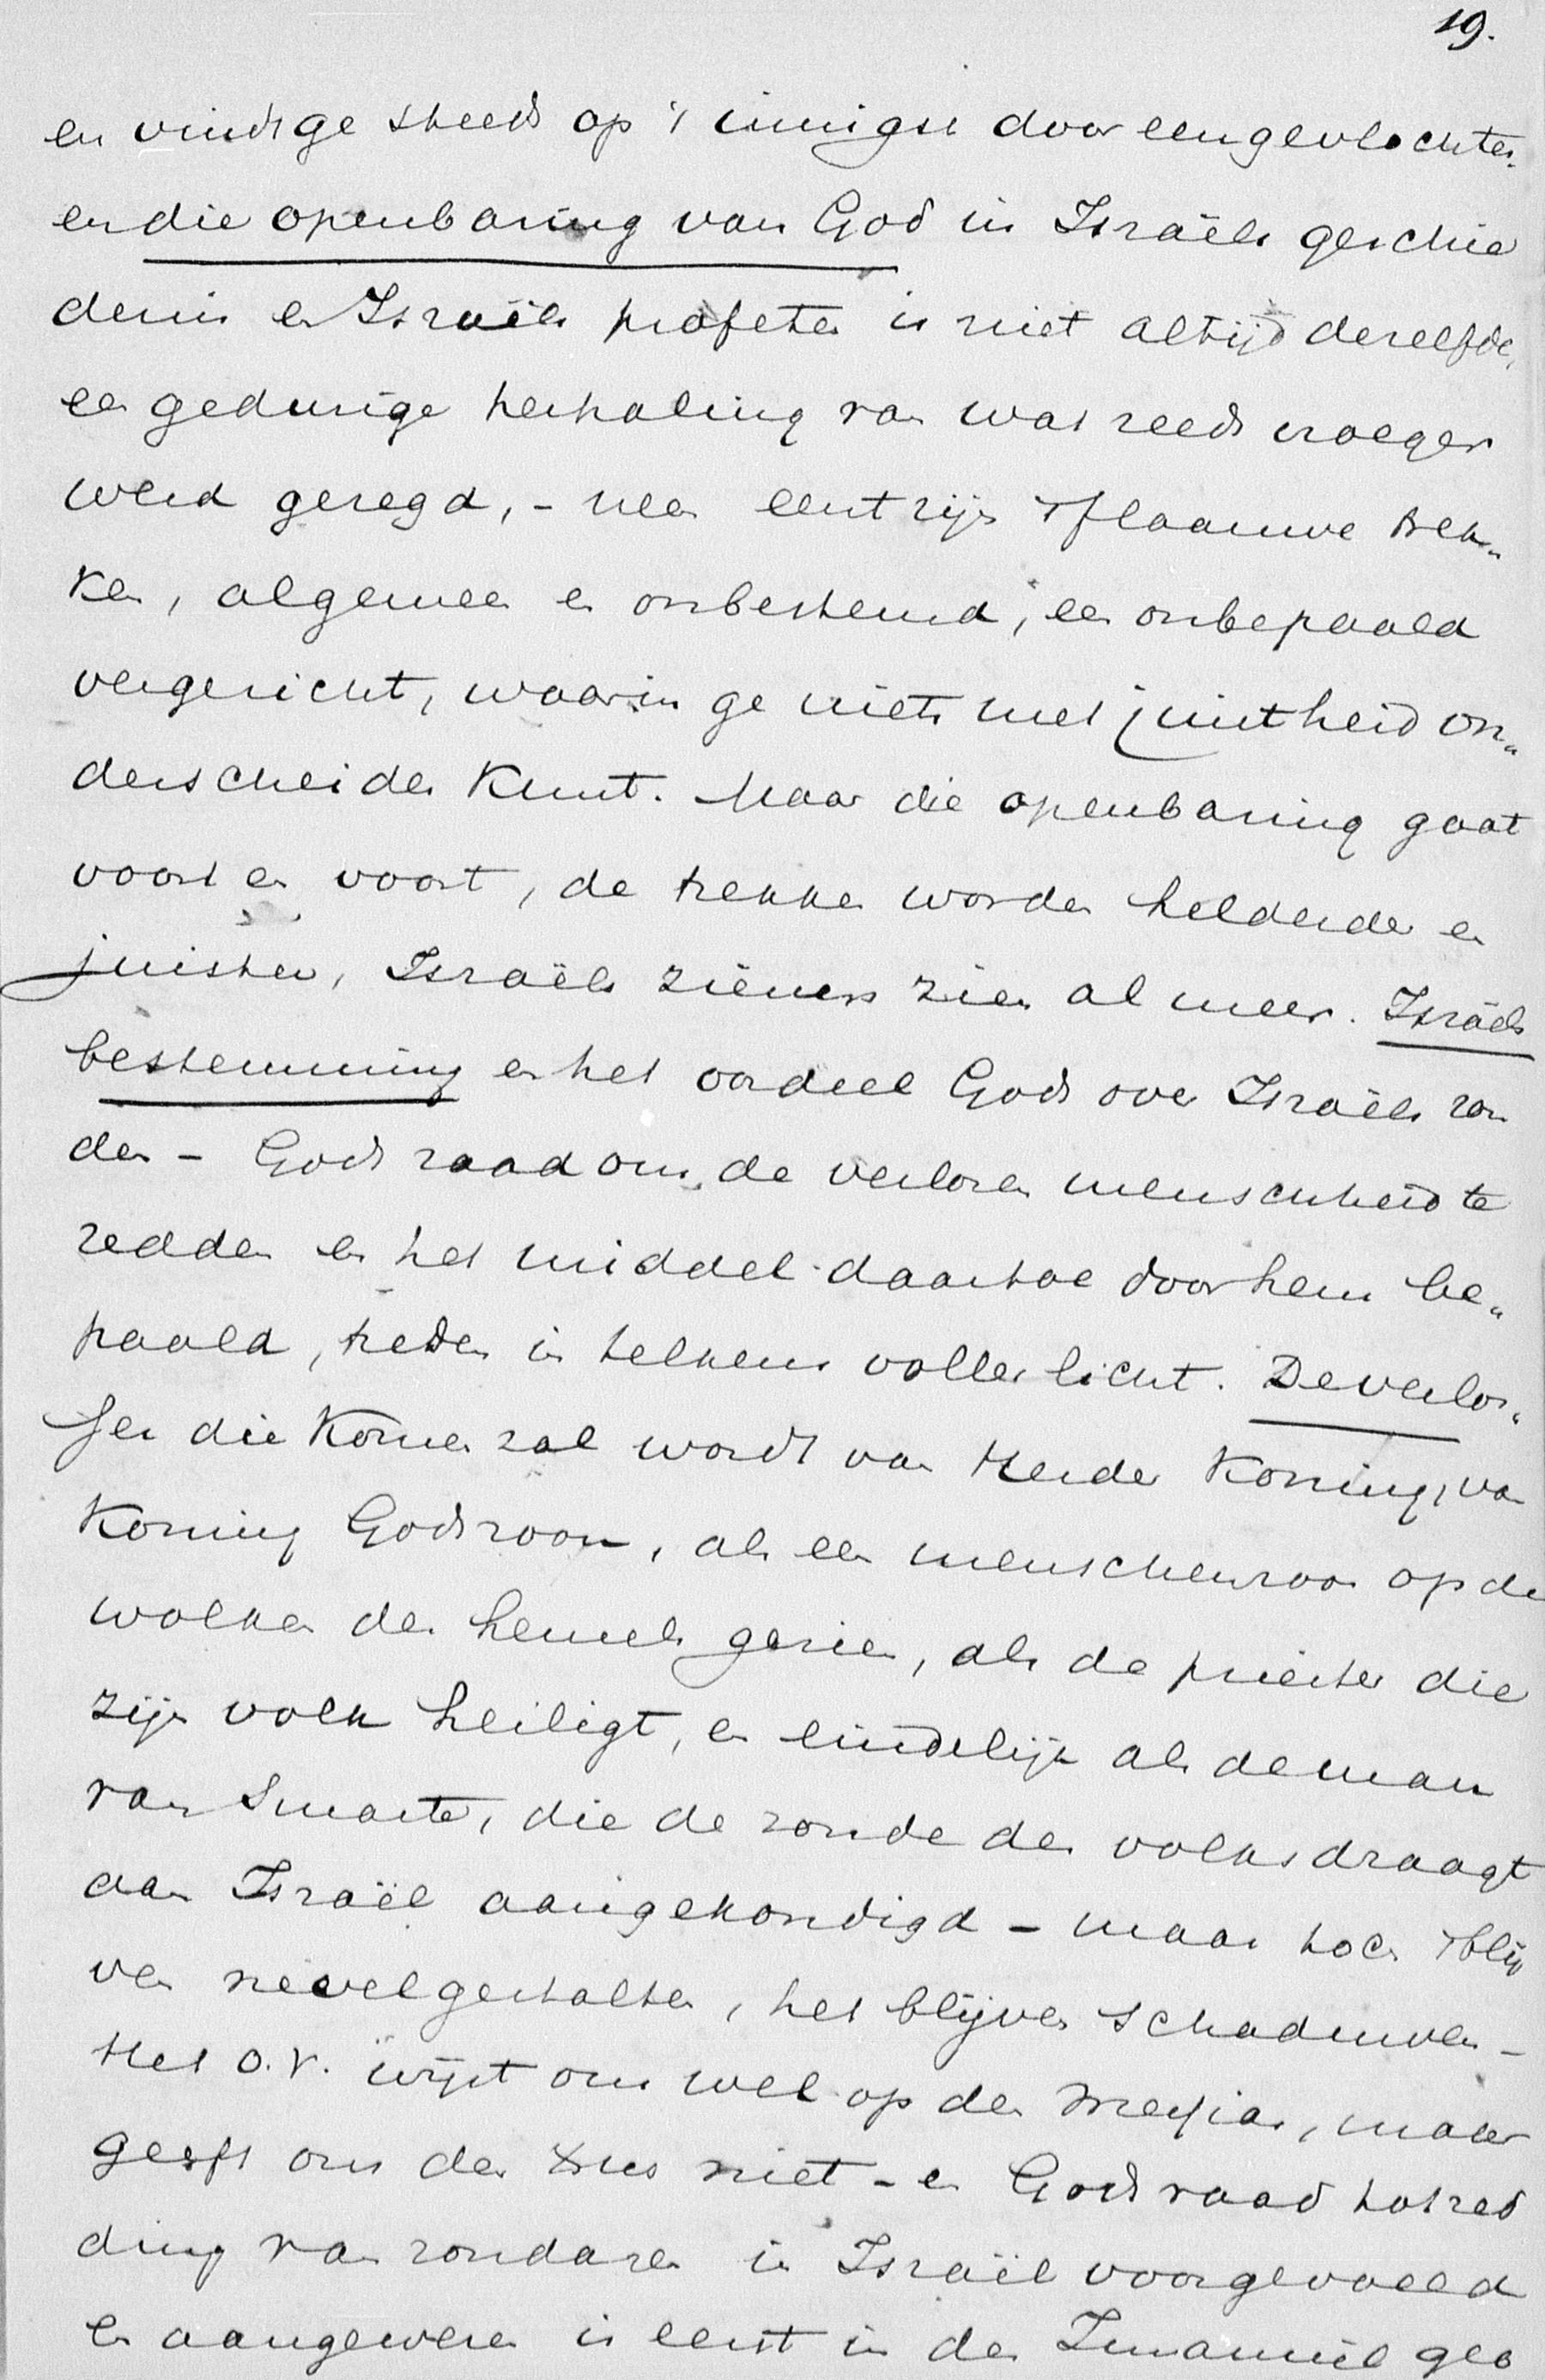 19.
en vindt ge steeds op 't innigst dooreengevlochten.
en die openbaring van God in Israëls geschie
denis en Israëls profeten is niet altijd dezelfde,
een gedurige herhaling van wat reeds vroeger
werd gezegd, - neen eerst zijn 't flaauwe trek„
ken, algemeen en onbestemd, een onbepaald
vergezicht, waarin ge niets met juistheid on„
derscheiden kunt. Maar die openbaring gaat
voort en voort, de trekken worden helderder en
juister, Israëls zieners zien al meer. Israëls
bestemming en het oordeel Gods over Israëls zon
den - Gods raad om de verloren menschheid te
redden en het middel daartoe door hem be„
paald, treden in telkens voller licht. De verlos„
ser die komen zal wordt van Herder Koning, van
Koning Gods zoon, als een menschenzoon op de
wolken des hemels gezien, als de priester die
zijn volk heiligt, en eindelijk als de man
van Smarte, die de zonde des volks draagt
aan Israël aangekondigd - maar toch 't blij
ven nevelgestalten, het blijven schaduwen -
Het O.V. wijst ons wel op den Messias, maar
geeft ons den niet - en Gods raad tot red
ding van zondaren in Israël voorgevoeld
en aangewezen is eerst in den Immanuël geo